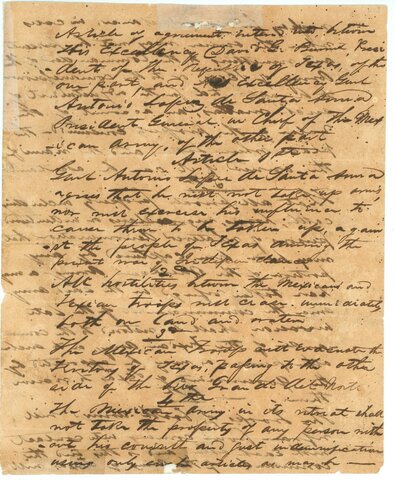 Article of agreement entered into between
His Excellency David G. Burnet Presi
dent of the Republic of Texas of the
one part, and His Excellency Genl
Antonio Lopez de Santa Anna
President General in Chief of the Mex
ican Army, of the other part
Article 1st
Genl Antonio Lopez de Santa Anna
agrees that he will not take up arms
nor will exercise his influence to
cause them to be taken up, again
st the people of Texas during the
present war of independence
2nd
All hostilities between the Mexican and
Texian troops will cease immediately
both on land and water
3rd
The Mexican troops will evacuate the
Territory of Texas, passing to the other
side of the Rio Grande del Norte
4th
The Mexican Army in its retreat shall
not take the property of any person with
out his consent and just indemnification
using only such articles as may be